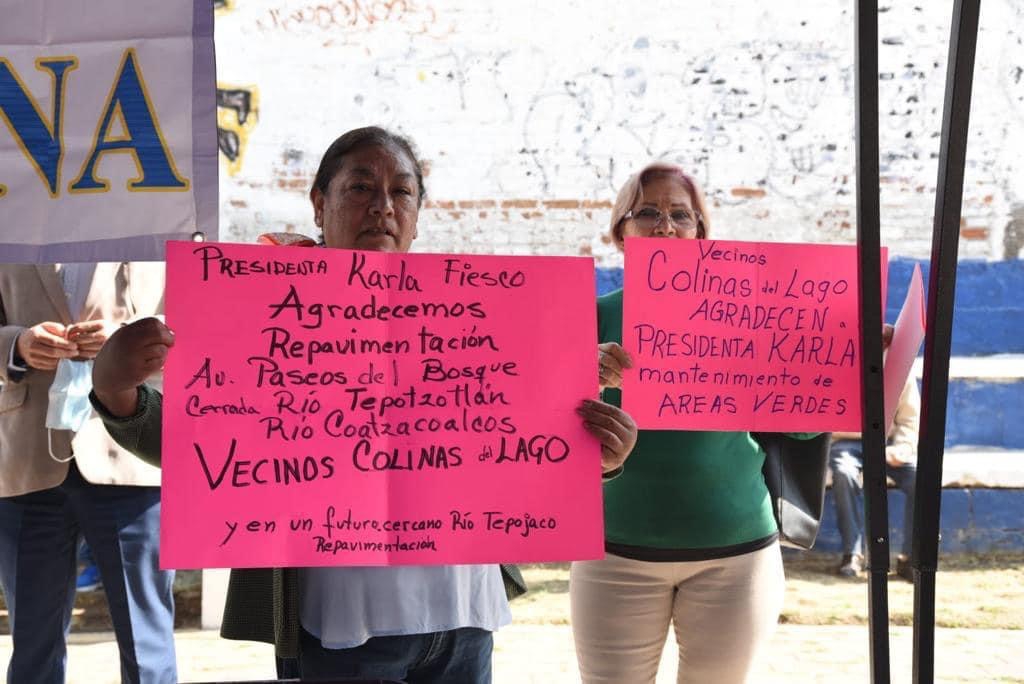 NA
PRESIDENTA Karla Fiesco
Agradecemos
Repavimentación
Av. Paseos del Bosque
Cerrada Río Tepotzotlán
Río Coatzacoalcos
VECINOS COLINAS del LAGO
y en un futuro cercano Río Tepojaco
Repavimentación
Vecinos
Colinas del Lago
AGRADECEN a
PRESIDENTA KARLA
mantenimiento de
AREAS VERDES